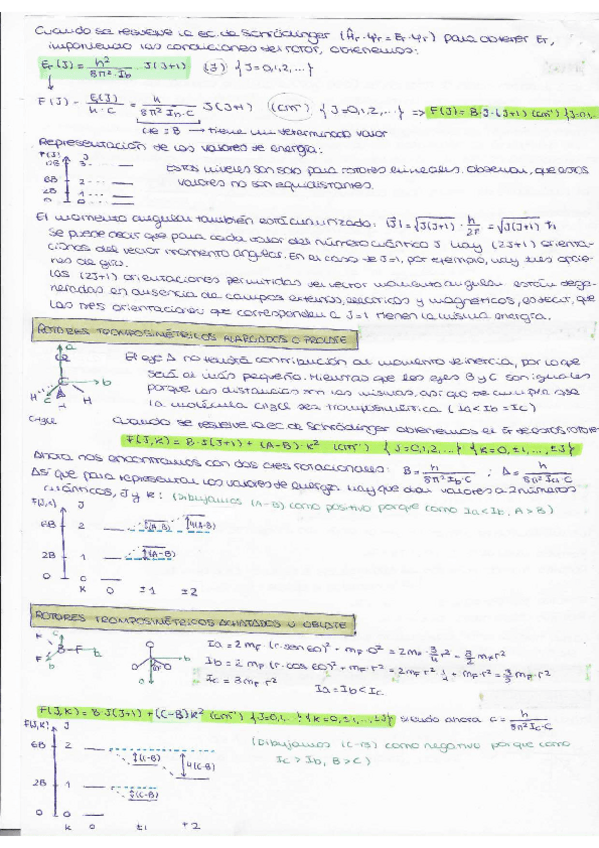 Cuando se resuelve la ec de Schrödinger (Ĥr·Ψr = Er·Ψr) para obtener Er,
imponiendo las condiciones del rotor, obtenemos:
Er(J) = h² / 8π²·Ib · J(J+1) (J) {J=0,1,2,...}
F(J) = Er(J) / h·C = h / 8π²·Ib·C · J(J+1) (cm⁻¹) {J=0,1,2,...} => F(J) = B·J·(J+1) (cm⁻¹) {J=0,1..
cte = B → tiene un determinado valor
Representación de los valores de energía:
F(J) J
12B 3
6B 2
2B 1
0 0
Estos niveles son solo para rotores lineales. Observar, que estos
valores no son equidistantes.
El momento angular también está cuantizado: |J| = √J(J+1) · h/2π = √J(J+1) ħ
Se puede decir que para cada valor del número cuántico J hay (2J+1) orienta-
ciones del vector momento angular. En el caso de J=1, por ejemplo, hay tres opcio-
nes de giro.
Las (2J+1) orientaciones permitidas del vector momento angular están dege-
neradas en ausencia de campos externos, eléctricos y magnéticos, es decir, que
las tres orientaciones que corresponden a J=1 tienen la misma energía.
ROTORES TROMPOSIMÉTRICOS ALARGADOS O PROLATE
a
b
C
H
H
CH3Cl
El eje A no tendrá contribución al momento de inercia, por lo que
será el más pequeño. Mientras que los ejes B y C son iguales
porque las distancias son las mismas, así que se cumple que
la molécula CH3Cl sea tromposimétrica (Ia<Ib=Ic)
Cuando se resuelve la ec de Schrödinger obtenemos el Er de estos rotores
F(J,K) = B·J(J+1) + (A-B)·K² (cm⁻¹) {J=0,1,2...} {K=0,±1,...,±J}
Ahora nos encontramos con dos ctes rotacionales: B = h / 8π²Ib·C ; A = h / 8π²Ia·C
Así que para representar los valores de energía hay que dar valores a 2 números
cuánticos, J y K: (Dibujamos (A-B) como positivo porque como Ia<Ib, A>B)
F(J,K) J
6B 2 (A-B) 4(A-B)
2B 1 (A-B)
0 0
K 0 ±1 ±2
ROTORES TROMPOSIMÉTRICOS ACHATADOS U OBLATE
F
B-F
F
b
Ia = 2mF·(r·sen60)² + mF·0² = 2mF·3/4 r² = 3/2 mF r²
Ib = 2mF·(r·cos60)² + mF·r² = 2mF r² 1/4 + mF·r² = 3/2 mF·r²
Ic = 3mF·r²
Ia = Ib < Ic
F(J,K) = B·J(J+1) + (C-B)K² (cm⁻¹) {J=0,1,...} {K=0,±1,...,±J} siendo ahora C = h / 8π²Ic·C
F(J,K) J
6B 2 (C-B) 4(C-B)
2B 1 (C-B)
0 0
K 0 ±1 ±2
(Dibujamos (C-B) como negativo porque como
Ic>Ib, B>C)